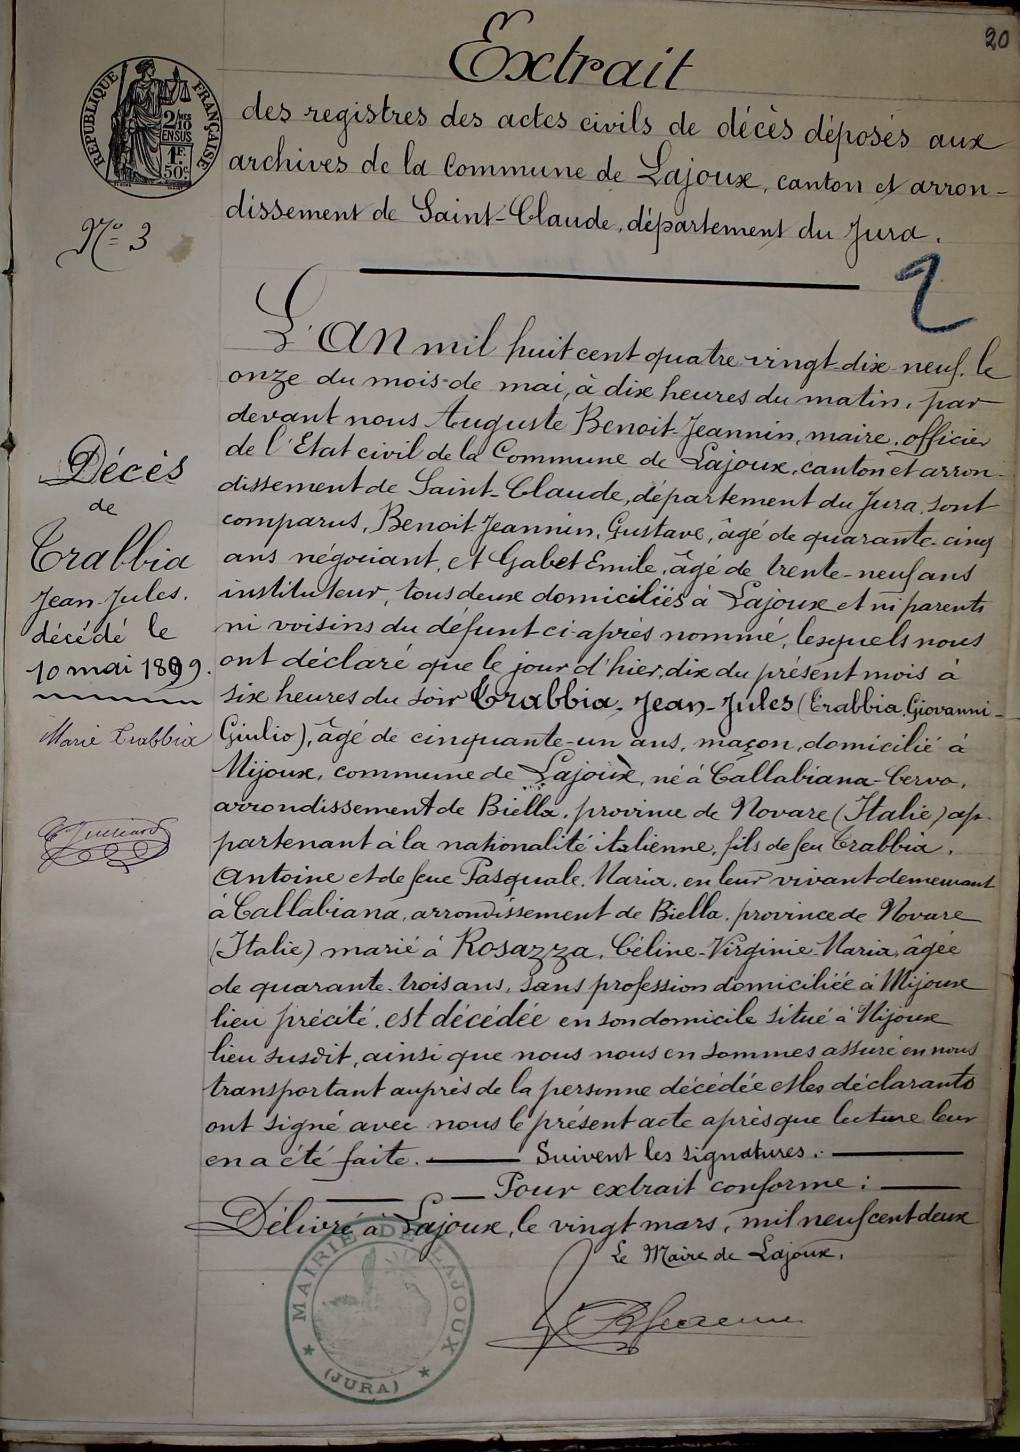 20
Extrait
RÉPUBLIQUE FRANÇAISE
2/10
EN SUS
1F.
50c.
des registres des actes civils de décès déposés aux
archives de la Commune de Lajoux, canton et arron-
dissement de Saint-Claude, département du Jura.
N° 3
2
L'AN mil huit cent quatre vingt-dix-neuf, le
onze du mois de mai, à dix heures du matin, par
devant nous Auguste Benoit-Jeannin, maire, officier
de l'Etat civil de la Commune de Lajoux, canton et arron-
dissement de Saint-Claude, département du Jura, sont
comparus, Benoit-Jeannin, Gustave, âgé de quarante-cinq
ans négociant, et Gabet Emile, âgé de trente-neuf ans
instituteur, tous deux domiciliés à Lajoux et ni parents
ni voisins du défunt ci-après nommé, lesquels nous
ont déclaré que le jour d'hier, dix du présent mois à
six heures du soir Trabbia, Jean-Jules (Trabbia, Giovanni-
Giulio), âgé de cinquante-un ans, maçon, domicilié à
Mijoux, commune de Lajoux, né à Callabiana-Cervo,
arrondissement de Biella, province de Novare (Italie) ap-
partenant à la nationalité italienne, fils de feu Trabbia,
Antoine et de feue Pasquale, Maria, en leur vivant demeurant
à Callabiana, arrondissement de Biella, province de Novare
(Italie) marié à Rosazza, Céline-Virginie-Maria, âgée
de quarante-trois ans, sans profession domiciliée à Mijoux
lieu précité, est décédée en son domicile situé à Mijoux
lieu susdit, ainsi que nous nous en sommes assuré en nous
transportant auprès de la personne décédée et les déclarants
ont signé avec nous le présent acte après que lecture leur
en a été faite. Suivent les signatures.
Pour extrait conforme:
Délivré à Lajoux, le vingt mars, mil neuf cent deux
Le Maire de Lajoux.
Décès
de
Trabbia
Jean-Jules.
décédé le
10 mai 1899.
Marie Trabbia
MAIRIE DE LAJOUX
(JURA)